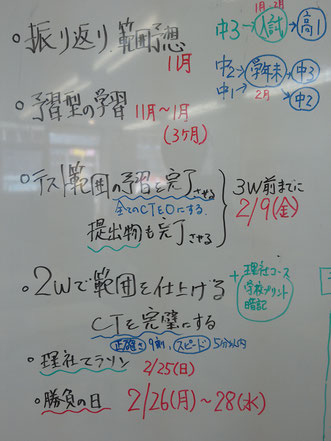 ○振り返り、範囲予想
11月
中3→入試→高1
1月、2月
中2→学年末→中3
中1→
2月
中2
○予習型の学習 11月～1月
(3ヶ月)
○テスト範囲の予習を完了させる
全てのCTを○にする
提出物も完了させる
3W前までに
2/9(金)
○2Wで範囲を仕上げる
CTを完璧にする
正確さ9割、スピード5分以内
+理社コース
学校プリント
暗記
○理社マラソン 2/25(日)
○勝負の日 2/26(月)～28(水)